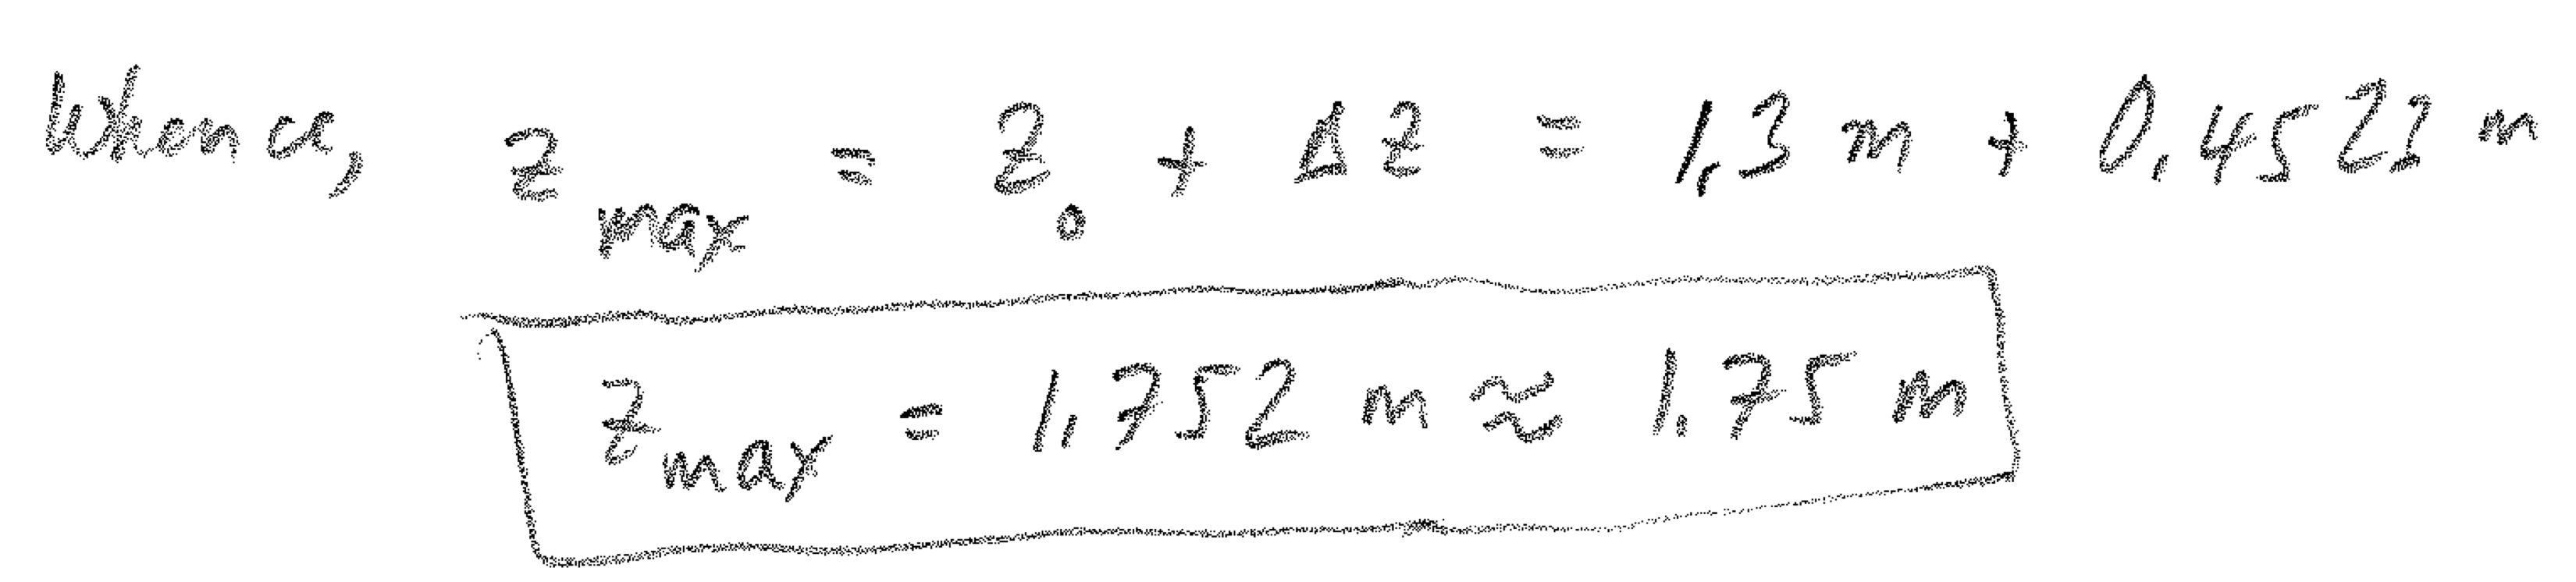 Whence, z_max = z_0 + Δz = 1,3 m + 0,4521 m
z_max = 1,752 m ≈ 1,75 m